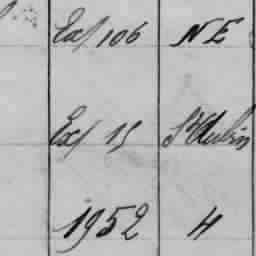 Ex/ 106 NE
Ex/ 15 St Aubin
1952 H